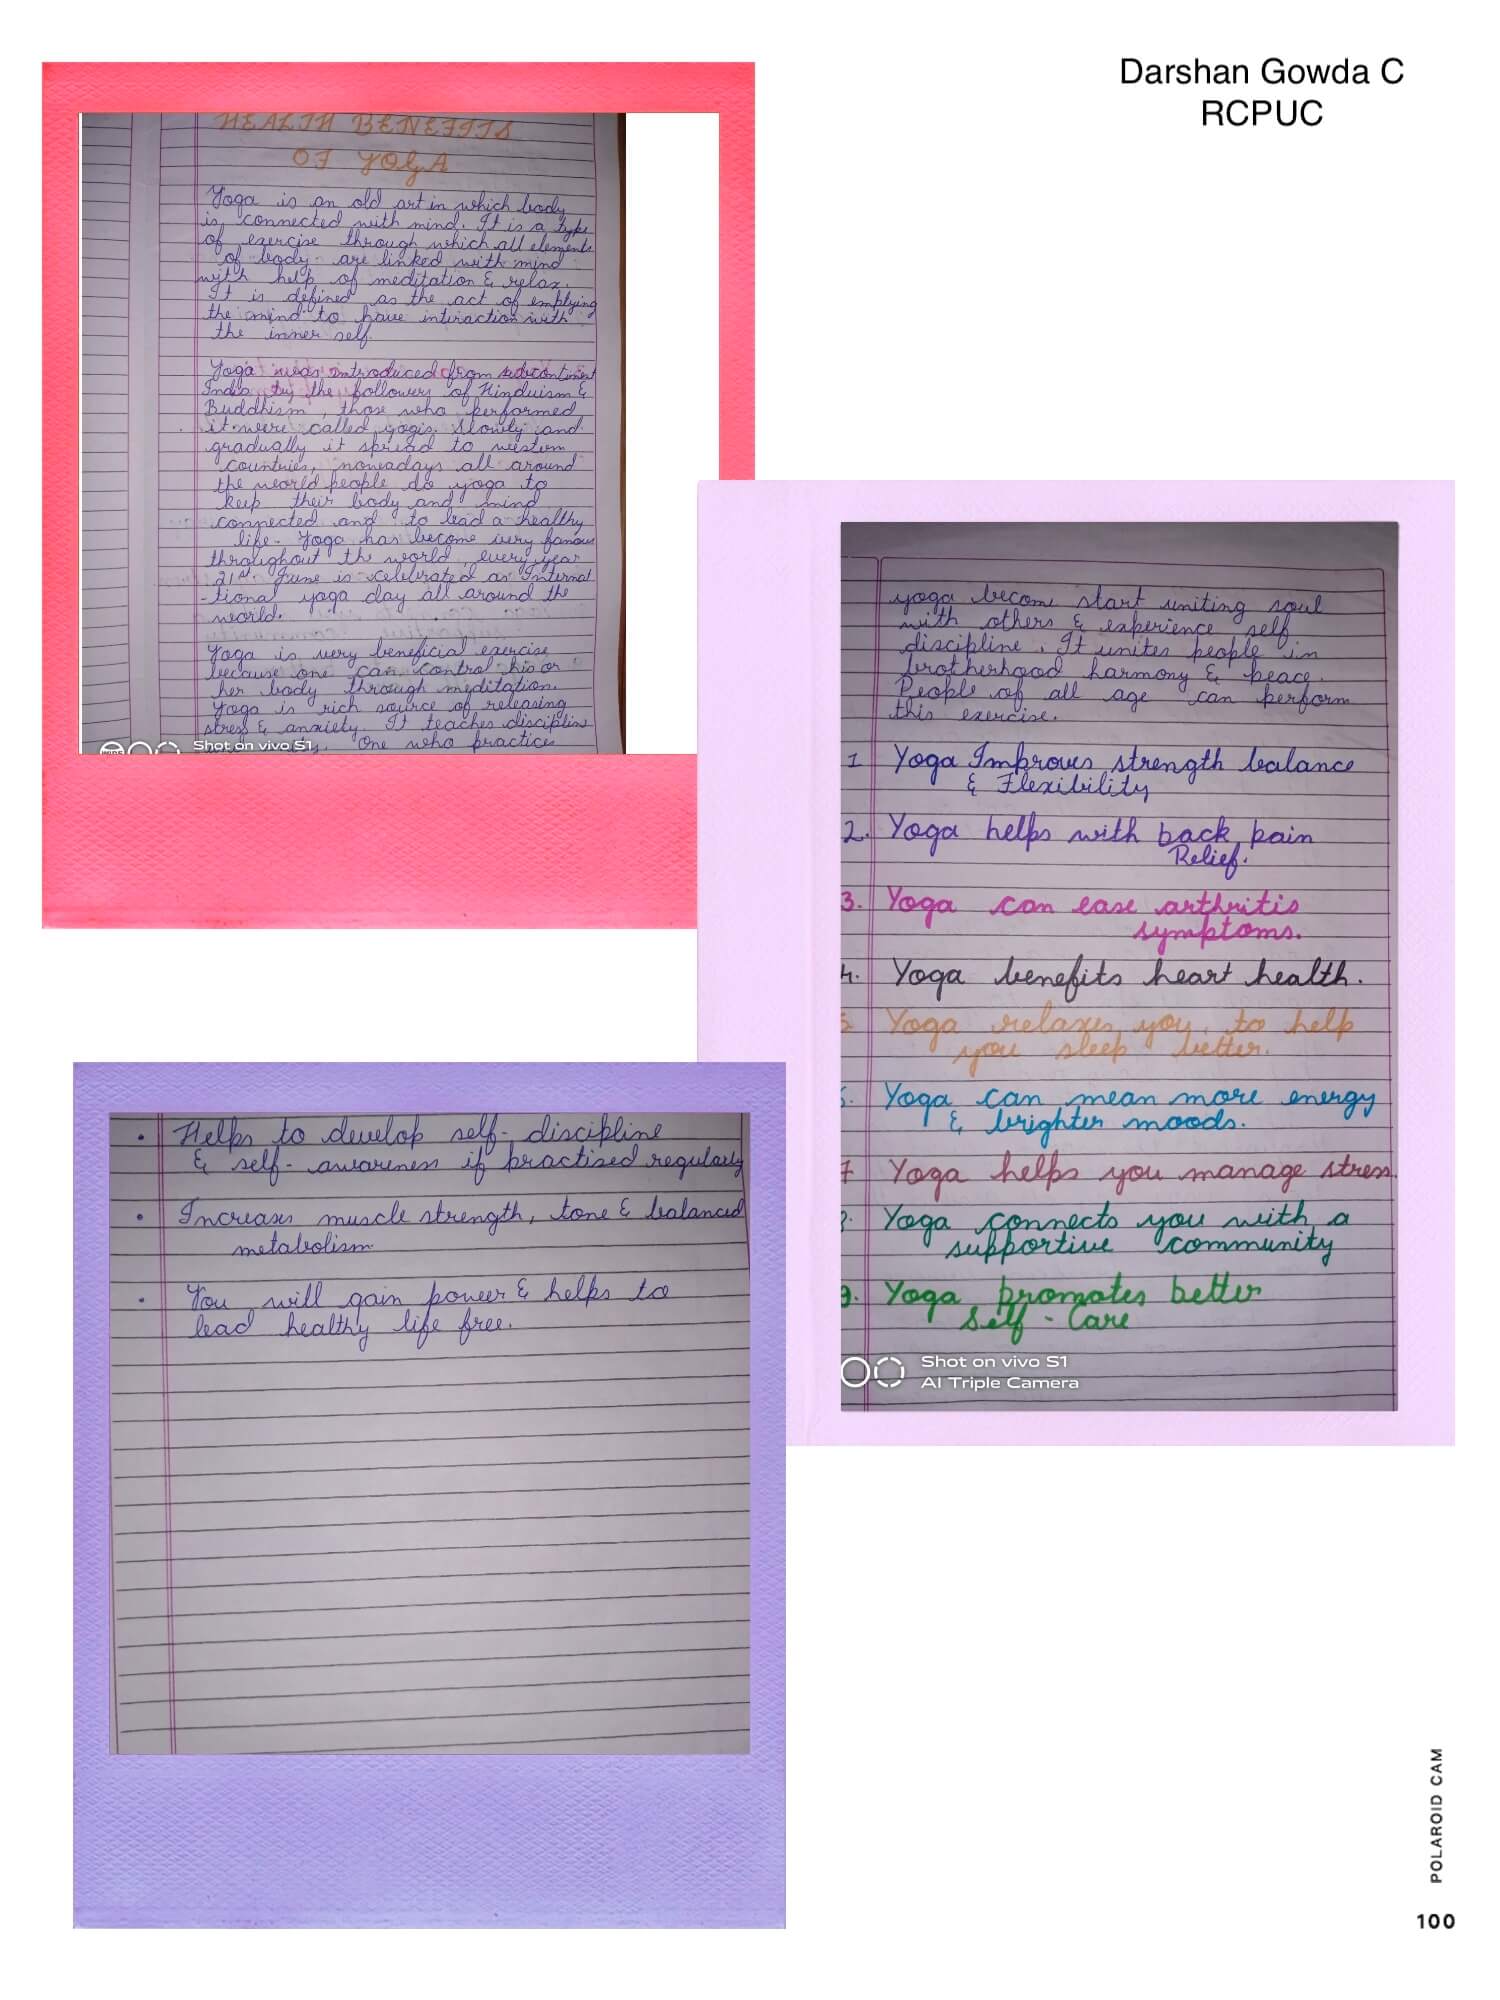 Darshan Gowda C
RCPUC
HEALTH BENEFITS
OF YOGA
Yoga is an old art in which body
is connected with mind. It is a type
of exercise through which all elements
of body are linked with mind
with help of meditation & relax.
It is defined as the act of emplying
the mind to have interaction with
the inner self.
Yoga was introduced from subcontinent
India by the followers of Hinduism &
Buddhism, those who performed
it were called yogis. Slowly and
gradually it spread to western
countries, nowadays all around
the world people do yoga to
keep their body and mind
connected and to lead a healthy
life. Yoga has become very famous
throughout the world every year
21st June is celebrated as Internat
-tional yoga day all around the
world.
Yoga is very beneficial exercise
because one can control his or
her body through meditation.
Yoga is rich source of releasing
stress & anxiety. It teaches discipline
One who practices
Shot on vivo S1
yoga become start uniting soul
with others & experience self
discipline. It unites people in
brotherhood harmony & peace.
People of all age can perform
this exercise.
1 Yoga Improves strength balance
& Flexibility
2. Yoga helps with back pain
Relief.
3. Yoga can ease arthritis
symptoms.
4. Yoga benefits heart health.
5. Yoga relaxes you, to help
you sleep better.
6. Yoga can mean more energy
& brighter moods.
7 Yoga helps you manage stress.
8. Yoga connects you with a
supportive community
9. Yoga promotes better
Self-Care
Shot on vivo S1
AI Triple Camera
• Helps to develop self-discipline
& self-awareness if practised regularly
• Increases muscle strength, tone & balanced
metabolism
• You will gain power & helps to
lead healthy life free.
POLAROID CAM
100